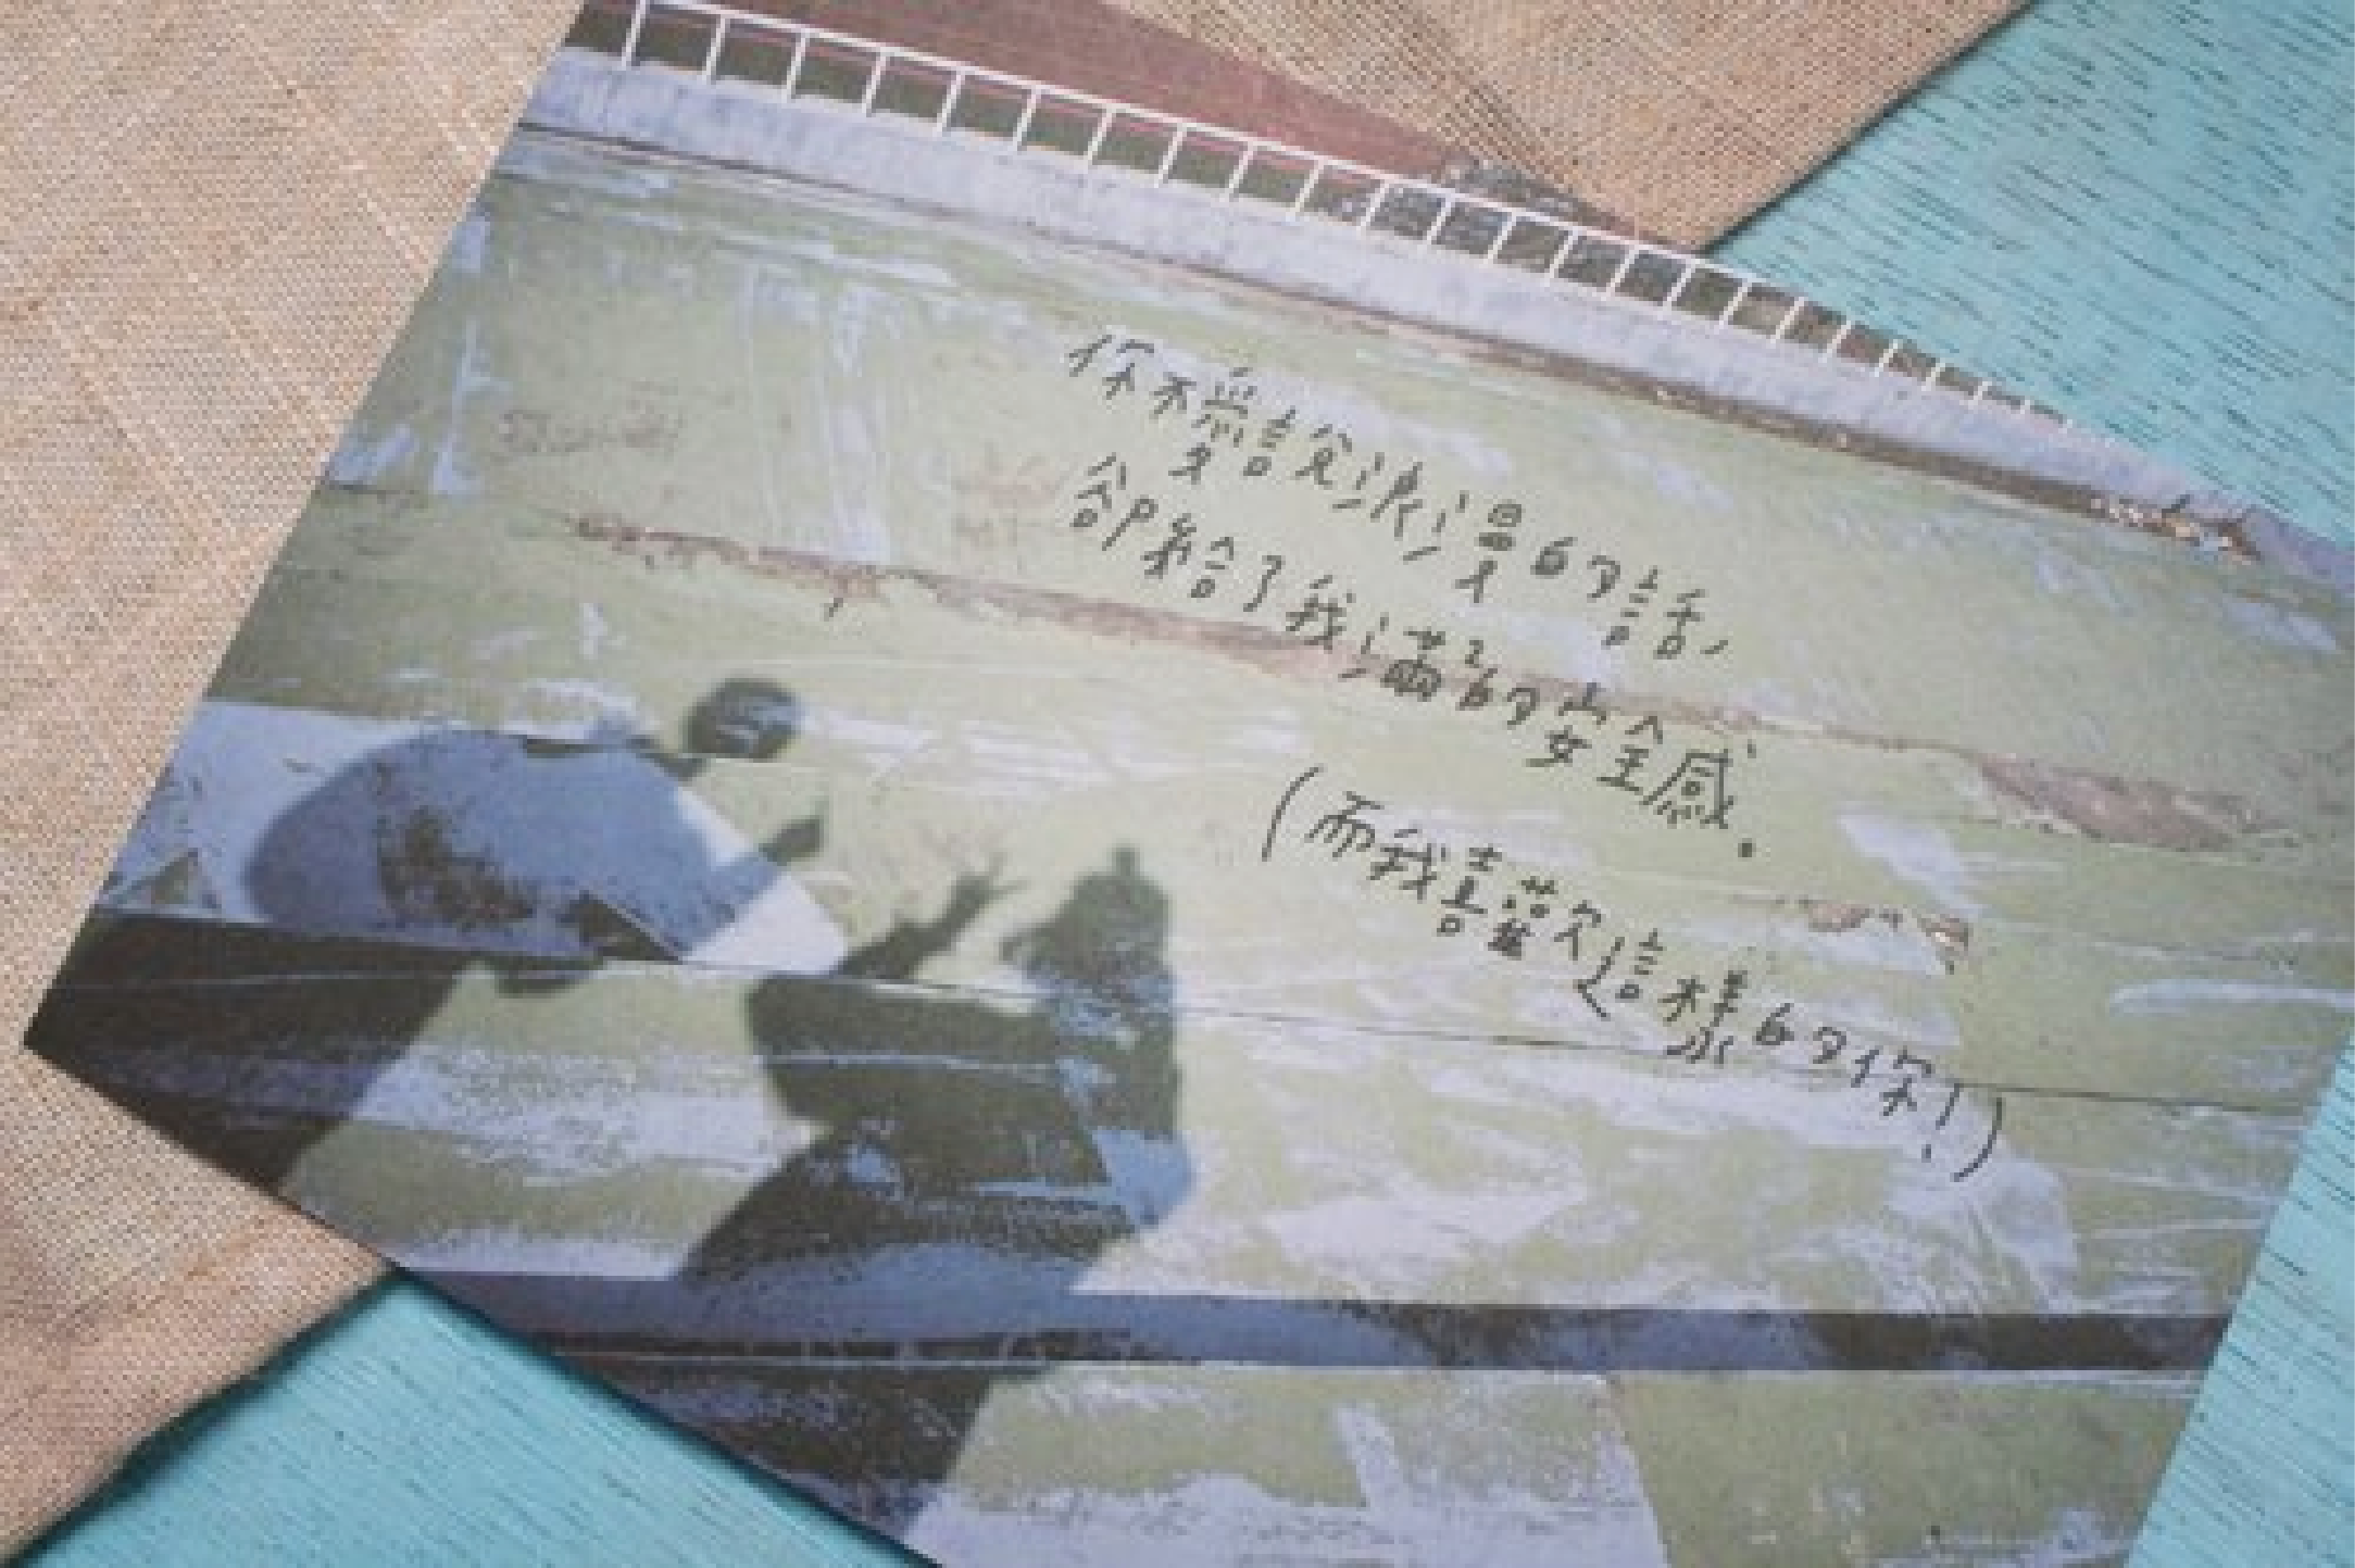 你不愛說浪漫的話,
卻給了我滿²的安全感.
(而我喜歡這樣的你!)